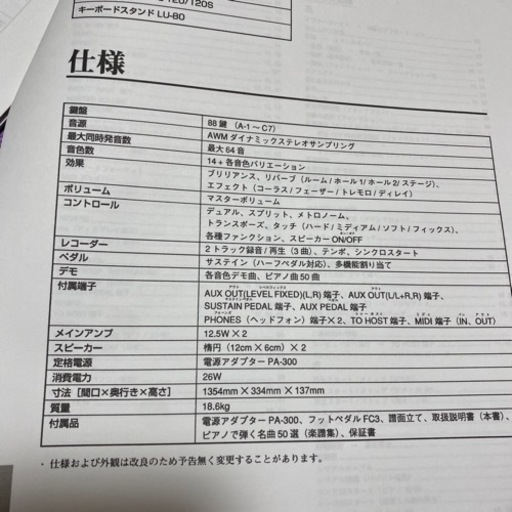 120/120S
キーボードスタンド LU-80
仕様
鍵盤 88鍵 (A-1～C7)
音源 AWM ダイナミックステレオサンプリング
最大同時発音数 最大64音
音色数 14＋各音色バリエーション
効果 ブリリアンス、リバーブ (ルーム/ホール1/ホール2/ステージ)、
エフェクト (コーラス/フェーザー/トレモロ/ディレイ)
ボリューム マスターボリューム
コントロール デュアル、スプリット、メトロノーム、
トランスポーズ、タッチ (ハード/ミディアム/ソフト/フィックス)、
各種ファンクション、スピーカー ON/OFF
レコーダー 2トラック録音/再生 (3曲)、テンポ、シンクロスタート
ペダル サステイン (ハーフペダル対応)、多機能割り当て
デモ 各音色デモ曲、ピアノ曲50曲
付属端子 AUX OUT(LEVEL FIXED)(L,R) 端子、AUX OUT(L/L+R,R) 端子、
SUSTAIN PEDAL 端子、AUX PEDAL 端子
PHONES (ヘッドフォン) 端子×2、TO HOST 端子、MIDI 端子 (IN、OUT)
メインアンプ 12.5W×2
スピーカー 楕円 (12cm×6cm)×2
定格電源 電源アダプター PA-300
消費電力 26W
寸法 [間口×奥行き×高さ] 1354mm×334mm×137mm
質量 18.6kg
付属品 電源アダプター PA-300、フットペダル FC3、譜面立て、取扱説明書 (本書)、
ピアノで弾く名曲50選 (楽譜集)、保証書
・仕様および外観は改良のため予告無く変更することがあります。